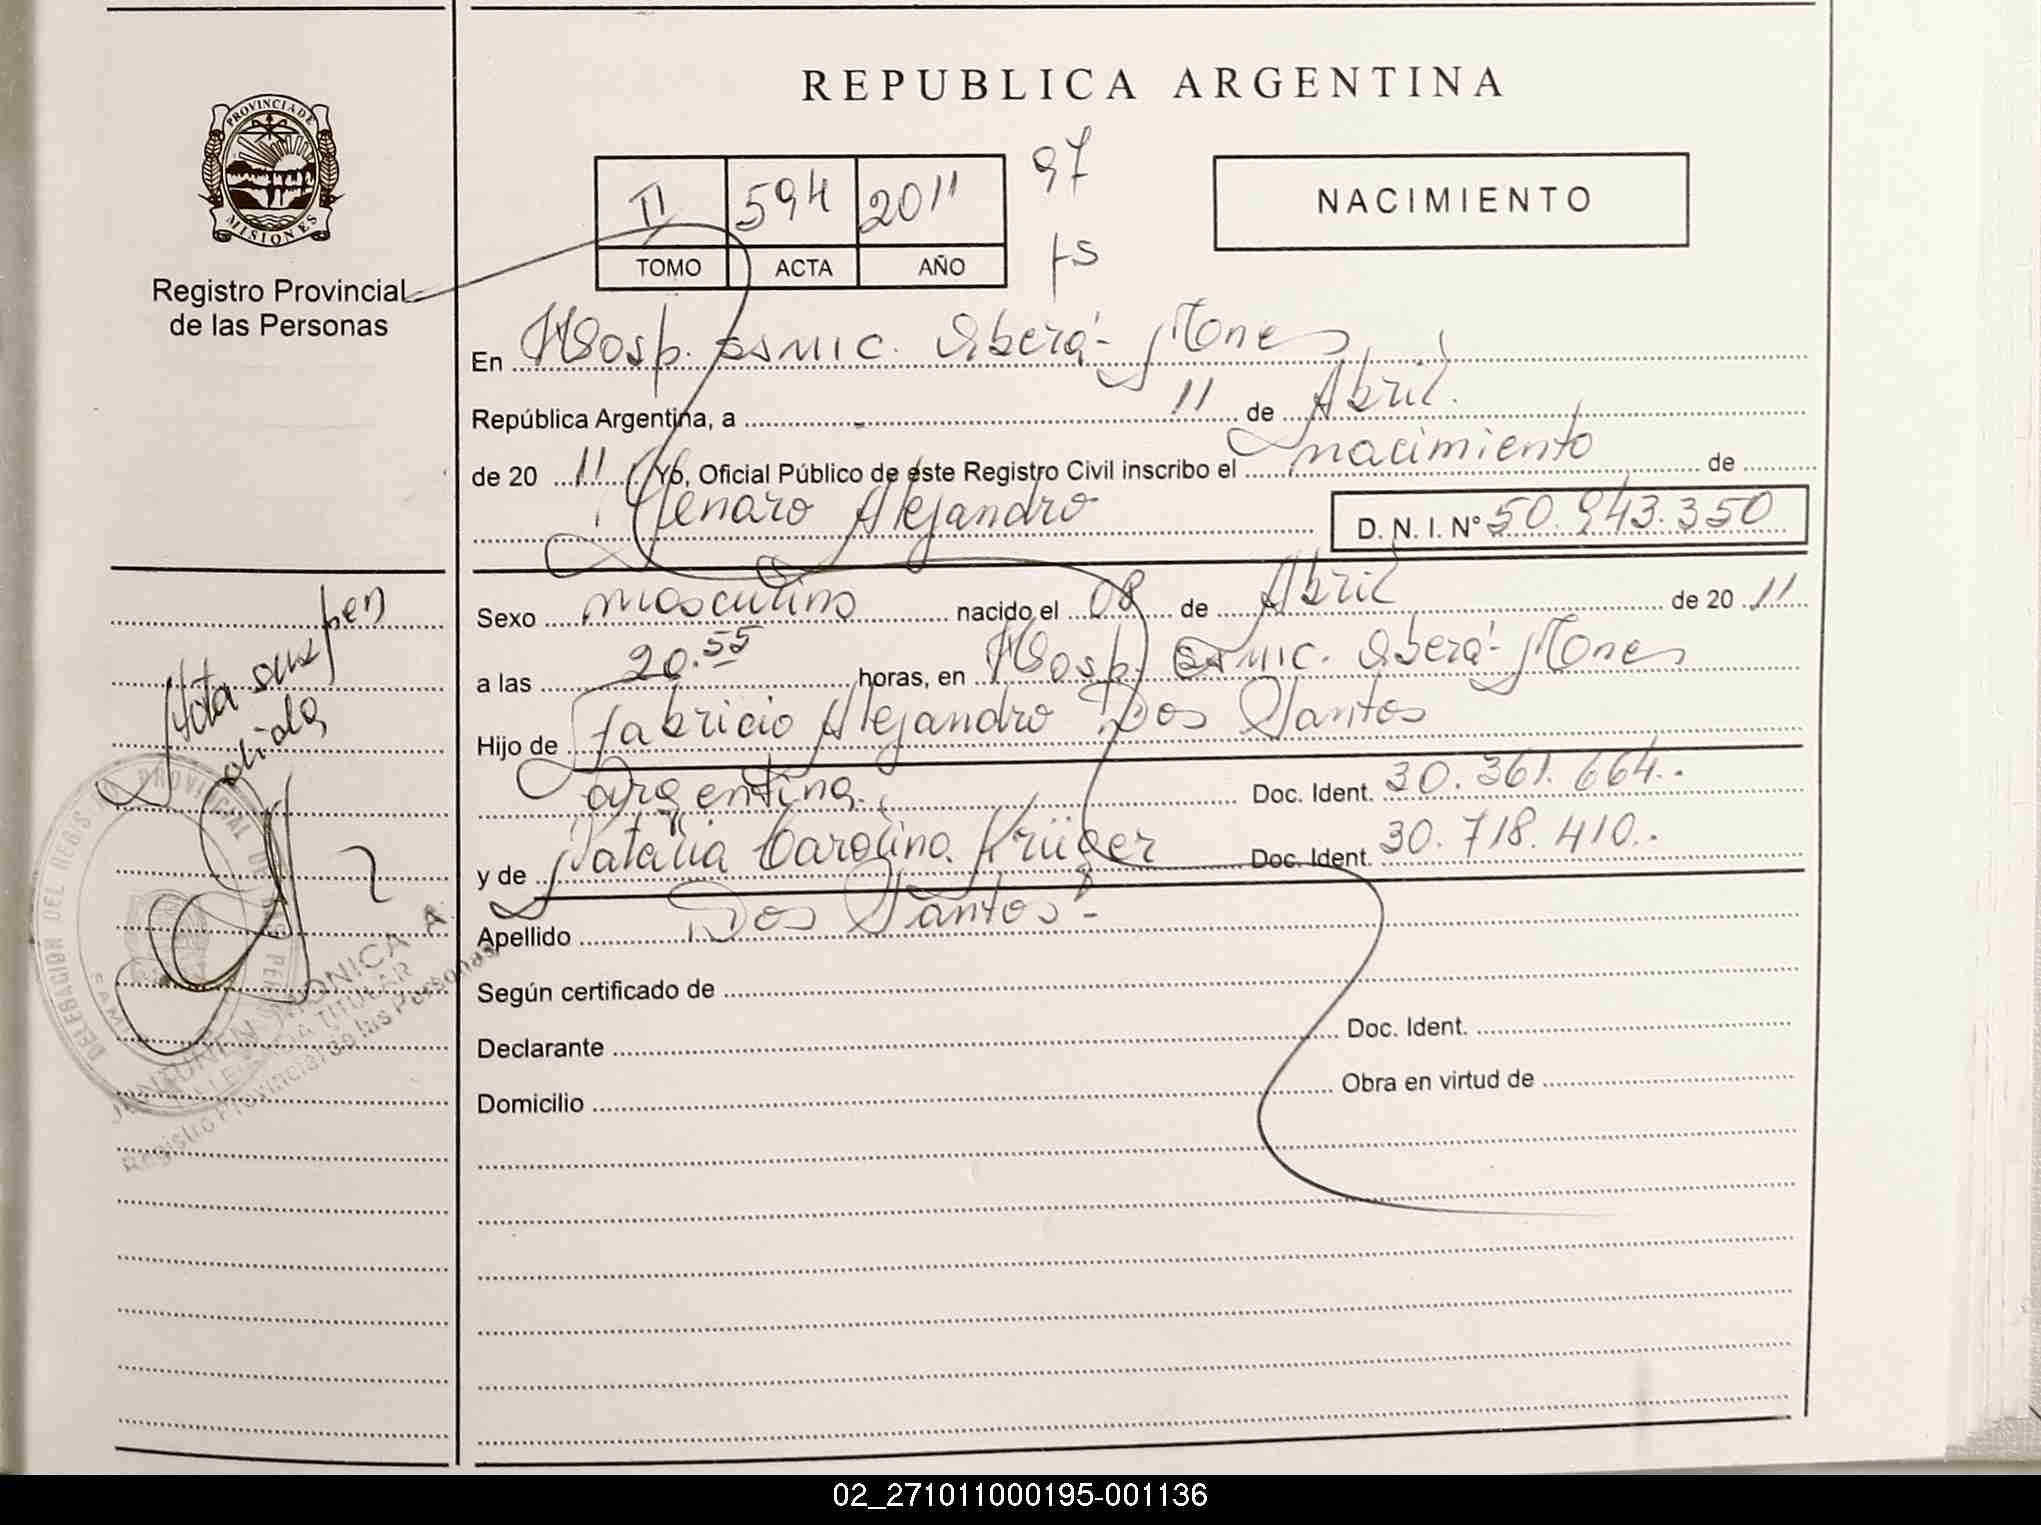 REPUBLICA ARGENTINA
PROVINCIA DE
MISIONES
Registro Provincial
de las Personas
II 594 2011
TOMO ACTA AÑO
97
fs
NACIMIENTO
En Hosp. Oberá - Mones
República Argentina, a 11 de Abril
de 2011 Yo, Oficial Público de este Registro Civil inscribo el nacimiento de
Genaro Alejandro D. N. I. N° 50.943.350
Sexo masculino nacido el 08 de Abril de 2011
a las 20.55 horas, en Hosp. Oberá - Mones
Hijo de Fabricio Alejandro Dos Santos
argentina Doc. Ident. 30.361.664.-
y de Natalia Carolina Krüger Doc. Ident. 30.718.410.-
Apellido Dos Santos.-
Según certificado de
Declarante Doc. Ident.
Domicilio Obra en virtud de
Acta suspen
dida
DELEGACION DEL REGISTRO PROVINCIAL DE LAS PERSONAS
MONICA A.
TITULAR
Registro Provincial de las Personas
02_271011000195-001136